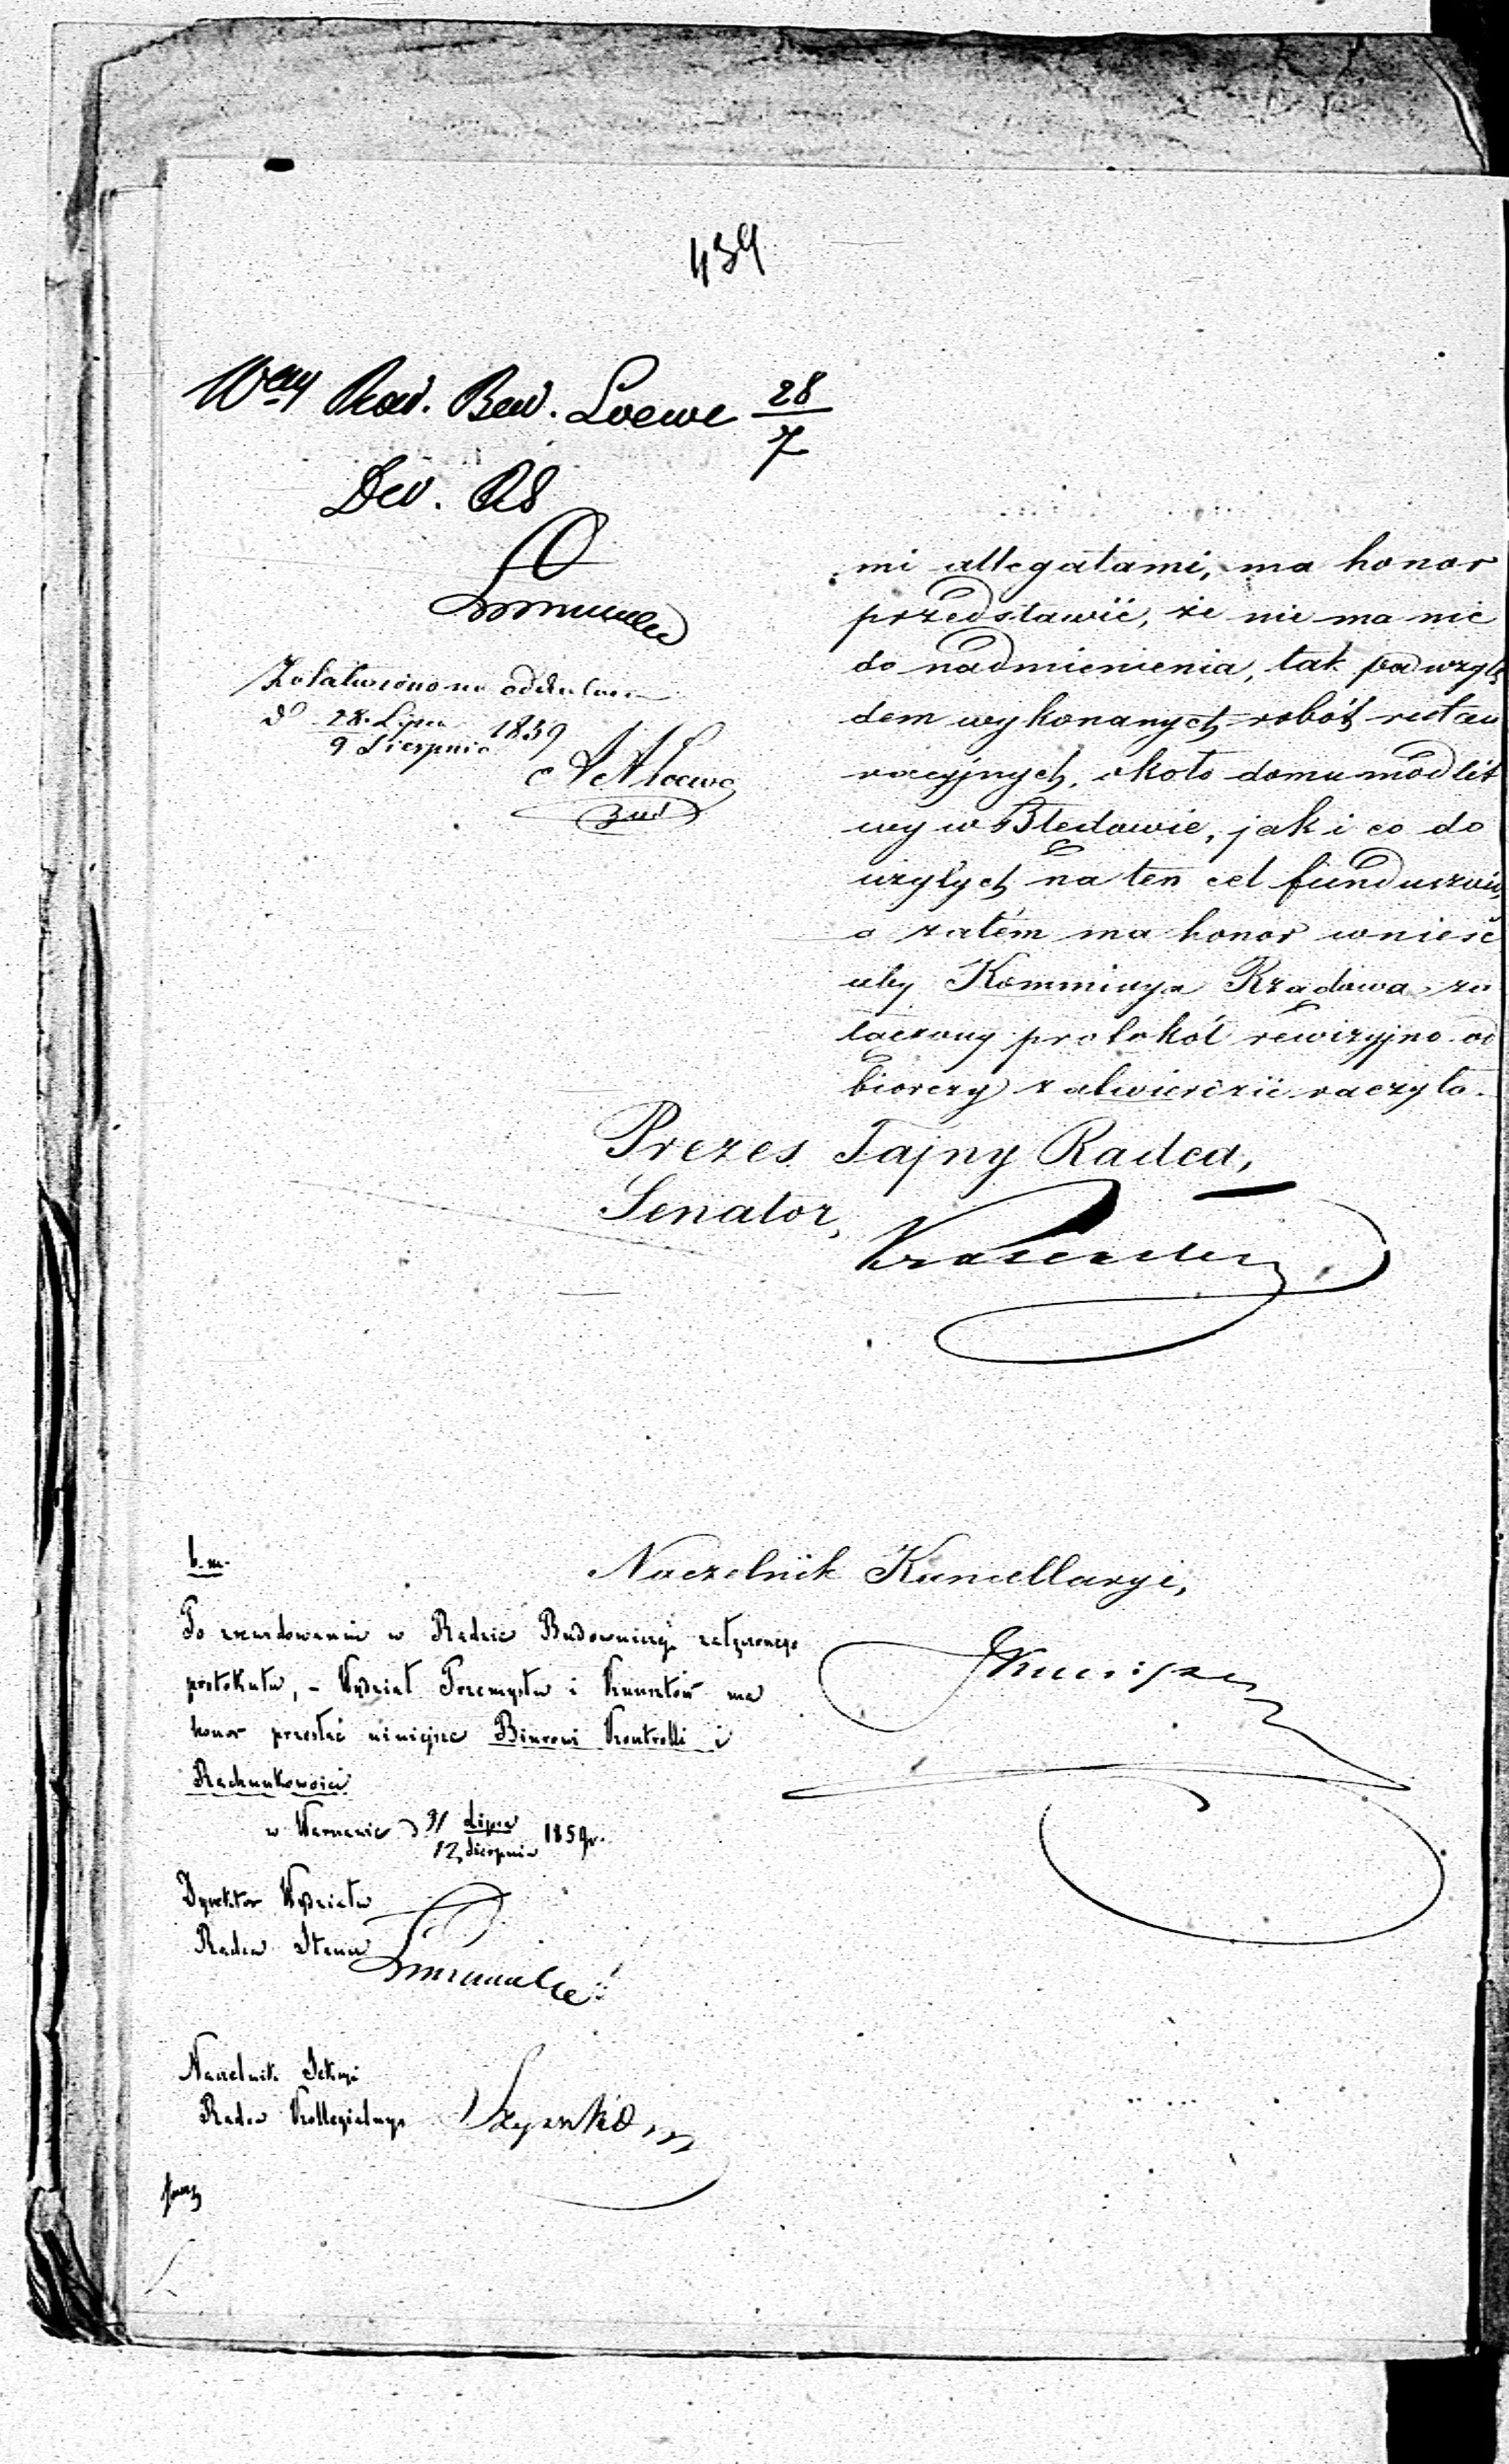 439
Wemu Rad. Bud. Loewe 28/7
Załatwiono na oddzielnem
d. 28. Lipca 1859
9 Sierpnia
A Loewe
mi allegatami, ma honor
przedstawić, że nie ma nic
do nadmienienia, tak pod wzglę
dem wykonanych robót restau
racyjnych, około domu modlit
wy w Błedowie, jak i co do
użytych na ten cel funduszów,
a zatem ma honor wnieść
aby Kommissya Rządowa za
łączony protokół rewizyjno-od
biorczy zatwierdzić raczyła.
Prezes Tajny Radca,
Senator,
Naczelnik Kancellaryi,
b. m.
Po zrewidowaniu w Radzie Budowniczej załączonego
protokułu, – Wydział Przemysłu i Kunsztów ma
honor przesłać niniejsze Biurowi Kontrolli i
Rachunkowości
w Warszawie d 31 Lipca 1859 r.
12 Sierpnia
Dyrektor Wydziału
Radca Stanu
Naczelnik Sekcyi
Radca Kollegialny